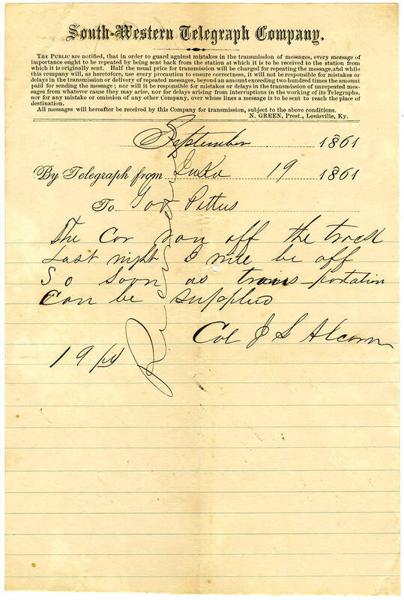 South-Western Telegraph Company.
THE PUBLIC are notified, that in order to guard against mistakes in the transmission of messages, every message of
importance ought to be repeated by being sent back from the station at which it is to be received to the station from
which it is originally sent. Half the usual price for transmission will be charged for repeating the message, and while
this company will, as heretofore, use every precaution to ensure correctness, it will not be responsible for mistakes or
delays in the transmission or delivery of repeated messages, beyond an amount exceeding two hundred times the amount
paid for sending the message; nor will it be responsible for mistakes or delays in the transmission of unrepeated messages
from whatever cause they may arise, nor for delays arising from interruptions in the working of its Telegraphs,
nor for any mistake or omission of any other Company, over whose lines a message is to be sent to reach the place of
destination.
All messages will hereafter be received by this Company for transmission, subject to the above conditions.
N. GREEN, Prest., Louisville, Ky.
September 1861
By Telegraph from Iuka 19 1861
To Gov Pettus
The Car ran off the track
Last night I will be off
So Soon as transportation
Can be supplied
Col J S Alcorn
19